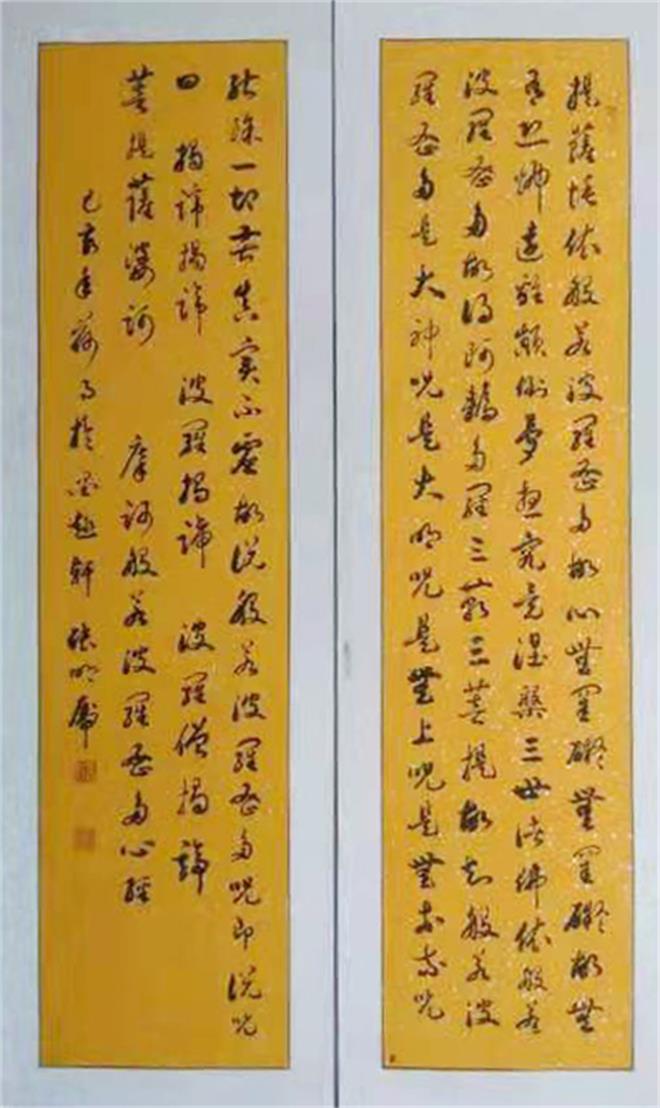 提薩埵依般若波羅蜜多故心無罣礙無罣礙故無
有恐怖遠離顛倒夢想究竟涅槃三世諸佛依般若
波羅蜜多故得阿耨多羅三藐三菩提故知般若波
羅蜜多是大神咒是大明咒是無上咒是無等等咒
能除一切苦真实不虛故說般若波羅蜜多咒即說咒
曰 揭諦揭諦 波羅揭諦 波羅僧揭諦
菩提薩婆訶 摩訶般若波羅蜜多心經
己亥年荷月於墨趣軒 張明